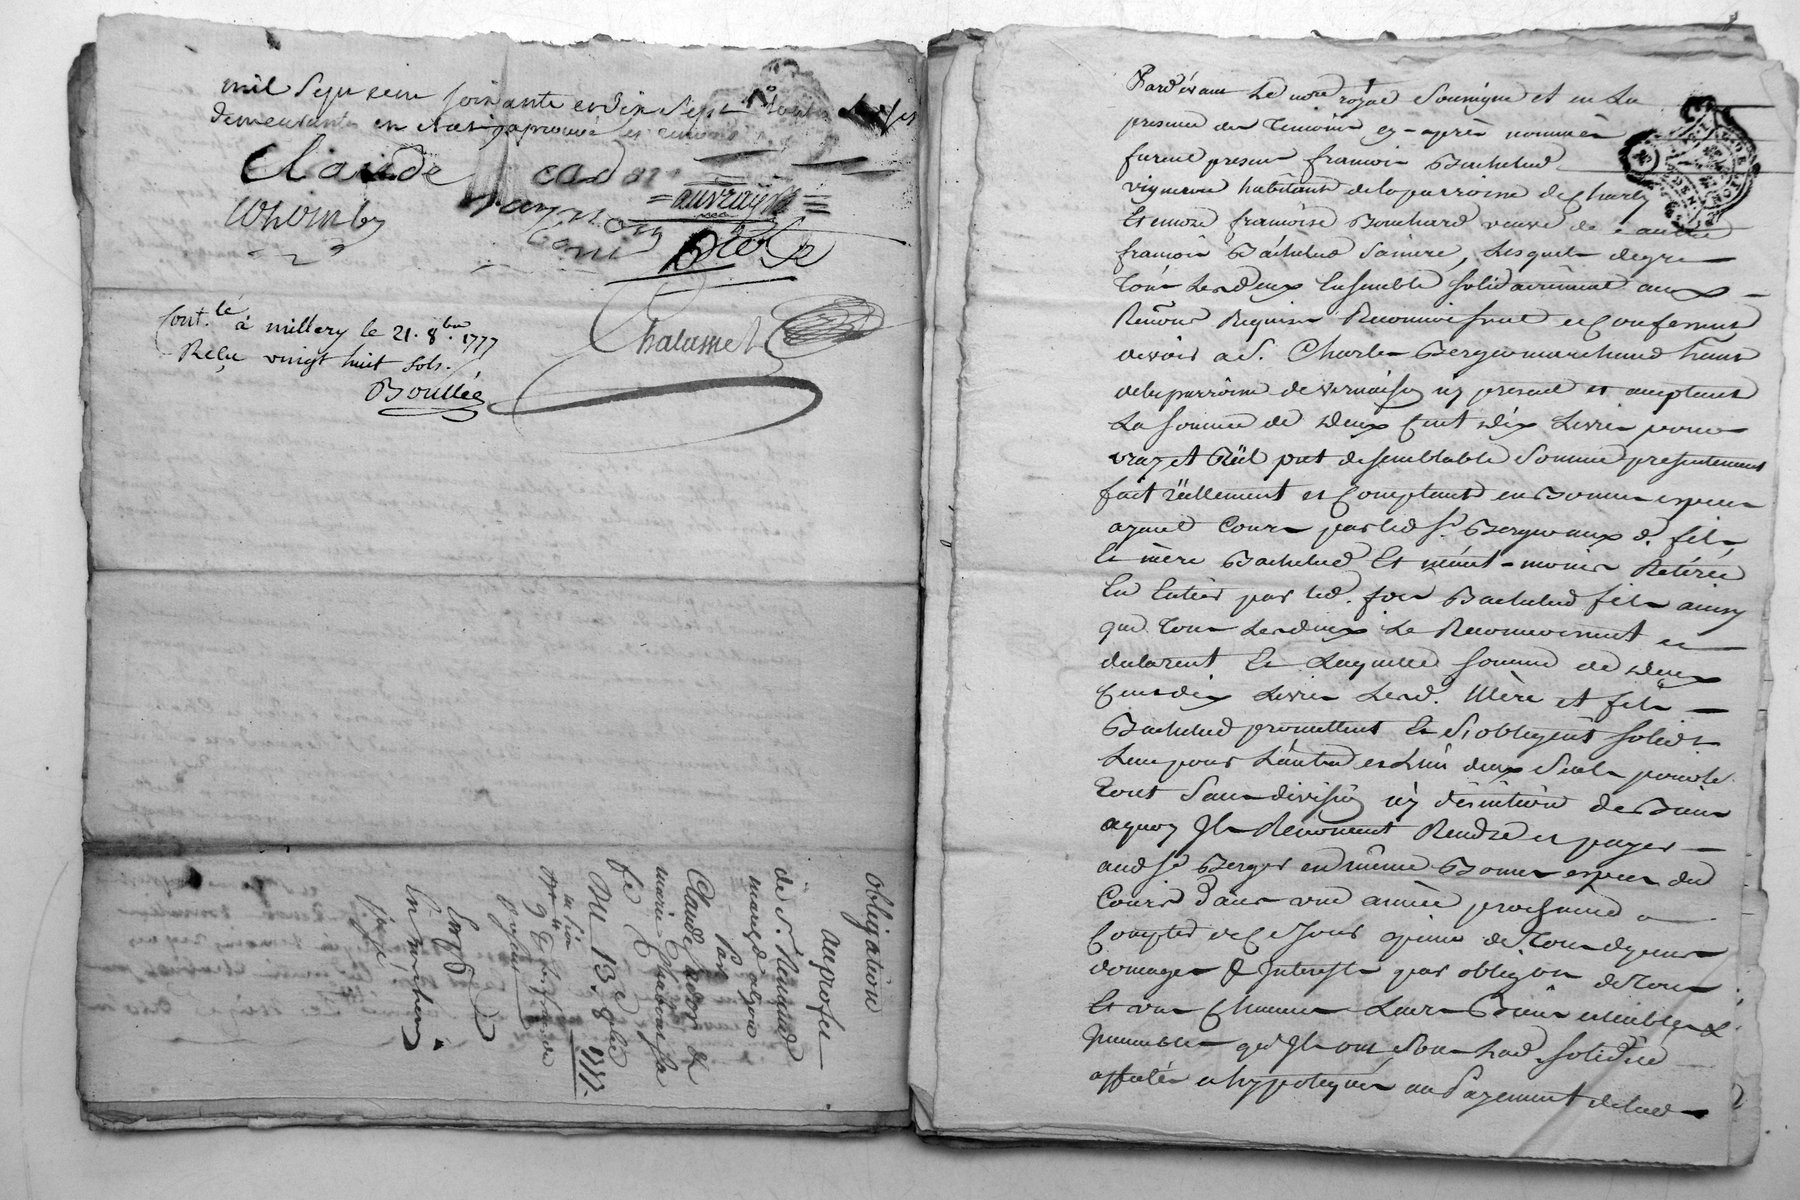 mil sept cent soixante et dix sept
demeurants en
Claude cador
auvray
thomby
Chalumel
Cont.lé à millery le 21. 8.bre 1777
Reçu vingt huit sols.
Boullée
obligation
au profit
de S.r Renard
march.d
Par
Claude cador &
marie
sa fe
Du 13.e 8bre
1777.
Pardevant Le no.re royal soussigné et en La
presence des temoins cy-après nommés
furent present francois Bachelud
vigneron habitant de la parroisse de Charly
Et encore francoise Bouchard veuve de autre
francois Bachelud son mere, Lesquels de gre
Tous Les deux Ensemble solidairement aux
Renons Requises Reconnoissent et Confessent
devoir a S. Charles Berger marchand hant
de la parroisse de vernaison icy present et acceptant
La somme de deux Cent dix Livres pour
vray et Réel pret de semblable somme presentement
fait réellement et Comptant en Bonnes especes
ayant Cours par led S.r Berger aux d. fils
Et mère Bachelud Et néant-moins Retirée
En Entier par led. fois Bachelud fils ainsy
que tous Les deux Le Reconnoissent et
declarent Et Laquelle somme de deux
Cens dix Livres Lesd. Mère et fils
Bachelud promettent Et s'obligent solid.t
L'un pour L'autre et L'un deux seul pour le
tout sans division ny discution de Biens
aquoy Ils Renoncent Rendre et payer
aud S.r Berger en même Bonnes especes du
Cours dans une année prochaine a
Compter de Ce Jour a peine de Tous depens
domages & Interests par obligon de Tous
Et un Chacuns Leurs Biens meubles &
Immeubles qu'Ils ont sous lad. solidité
affectés et hypotequés au Payement de lad